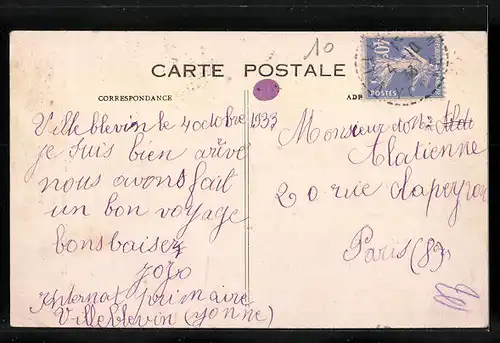 10
CARTE POSTALE
CORRESPONDANCE
40c
POSTES
Villeblevin le 4 octobre 1933
je suis bien arivé
nous avons fait
un bon voyage
bons baisers
jojo
Internat primaire
Villeblevin (yonne)
Monsieur
Alatienne
20 rue Laperyon
Paris (8)